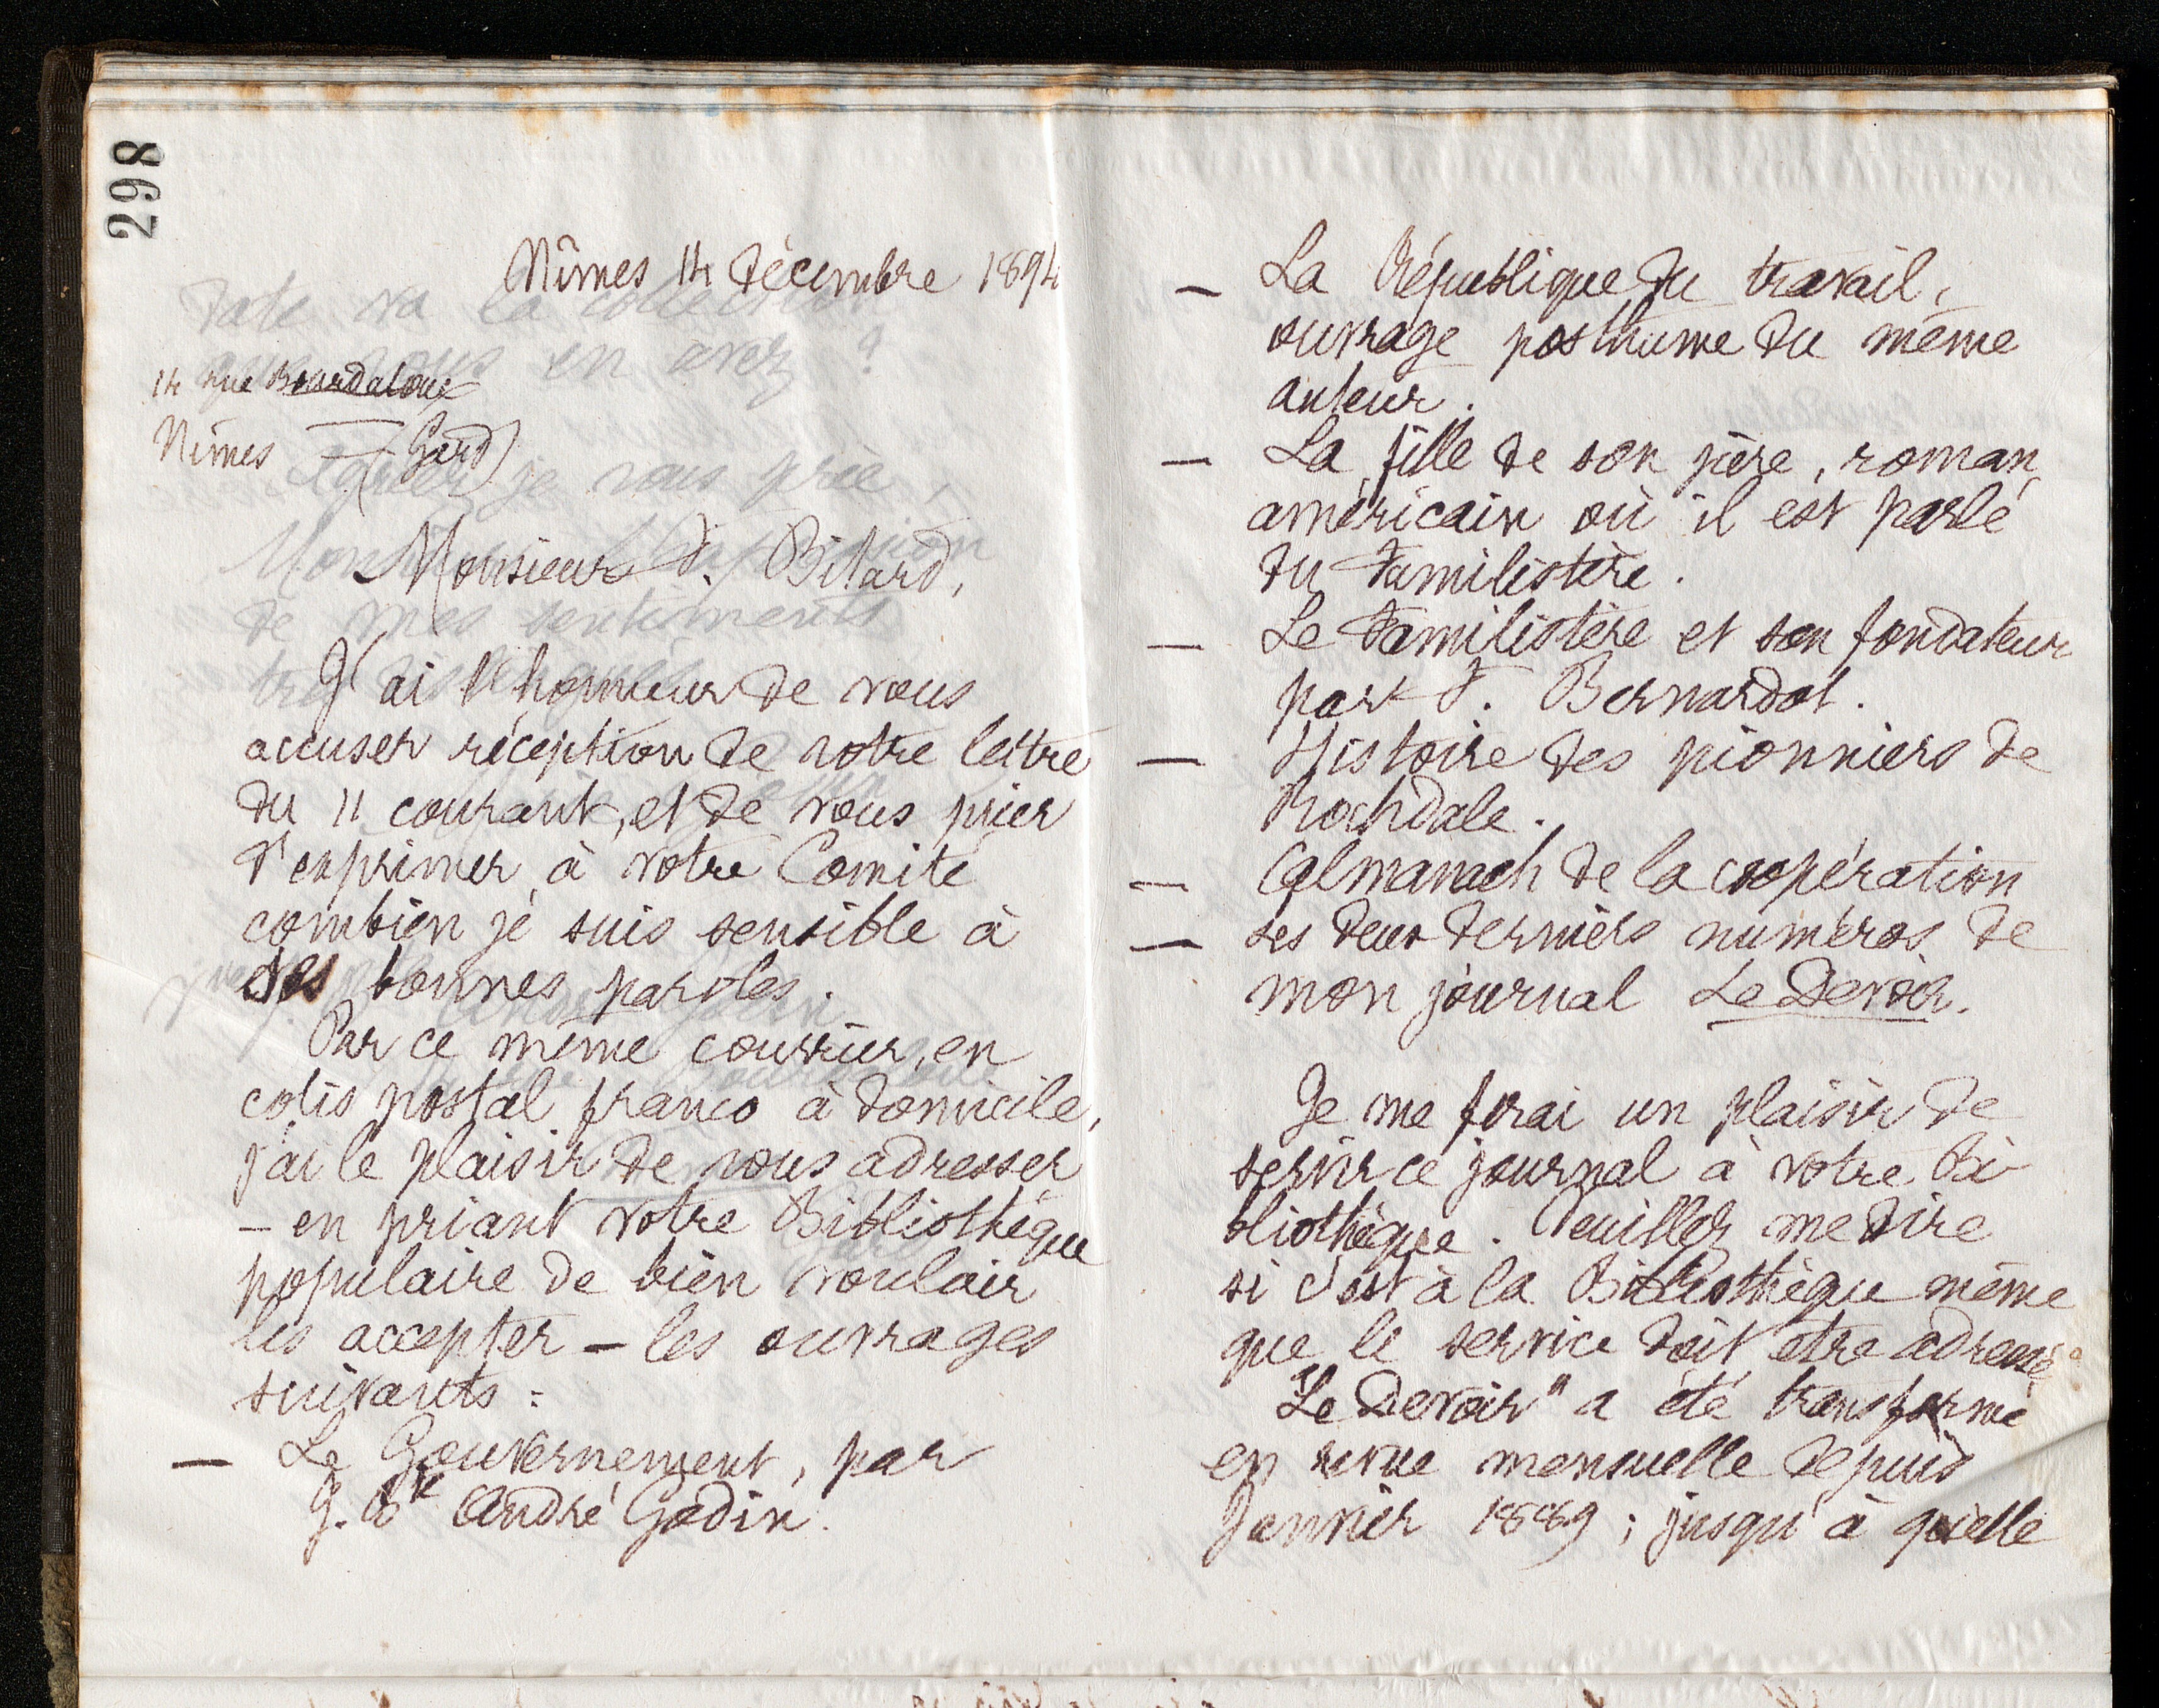 298
Nîmes 14 décembre 1894
14 rue Bourdaloue
Nîmes — (Gard)
Monsieur F. Bitard,
J'ai l'honneur de vous
accuser réception de votre lettre
du 11 courant, et de vous prier
d'exprimer à votre Comité
combien je suis sensible à
ses bonnes paroles.
Par ce même courrier, en
colis postal franco à domicile,
j'ai le plaisir de vous adresser
– en priant votre Bibliothèque
populaire de bien vouloir
les accepter – les ouvrages
suivants :
— Le Gouvernement, par
J. Bte André Godin.
— La République du travail,
ouvrage posthume du même
auteur.
— La fille de son père, roman
américain où il est parlé
du Familistère.
— Le Familistère et son fondateur
par F. Bernardot.
— Histoire des pionniers de
Rochdale.
— Almanach de la coopération
— Les deux derniers numéros de
mon journal Le Devoir.
Je me ferai un plaisir de
servir ce journal à votre Bi-
bliothèque. Veuillez me dire
si c'est à la Bibliothèque même
que le service doit être adressé.
"Le Devoir" a été transformé
en revue mensuelle depuis
Janvier 1889 ; jusqu'à quelle
date va la collection
que vous en avez ?
je vous prie,
de mes sentiments